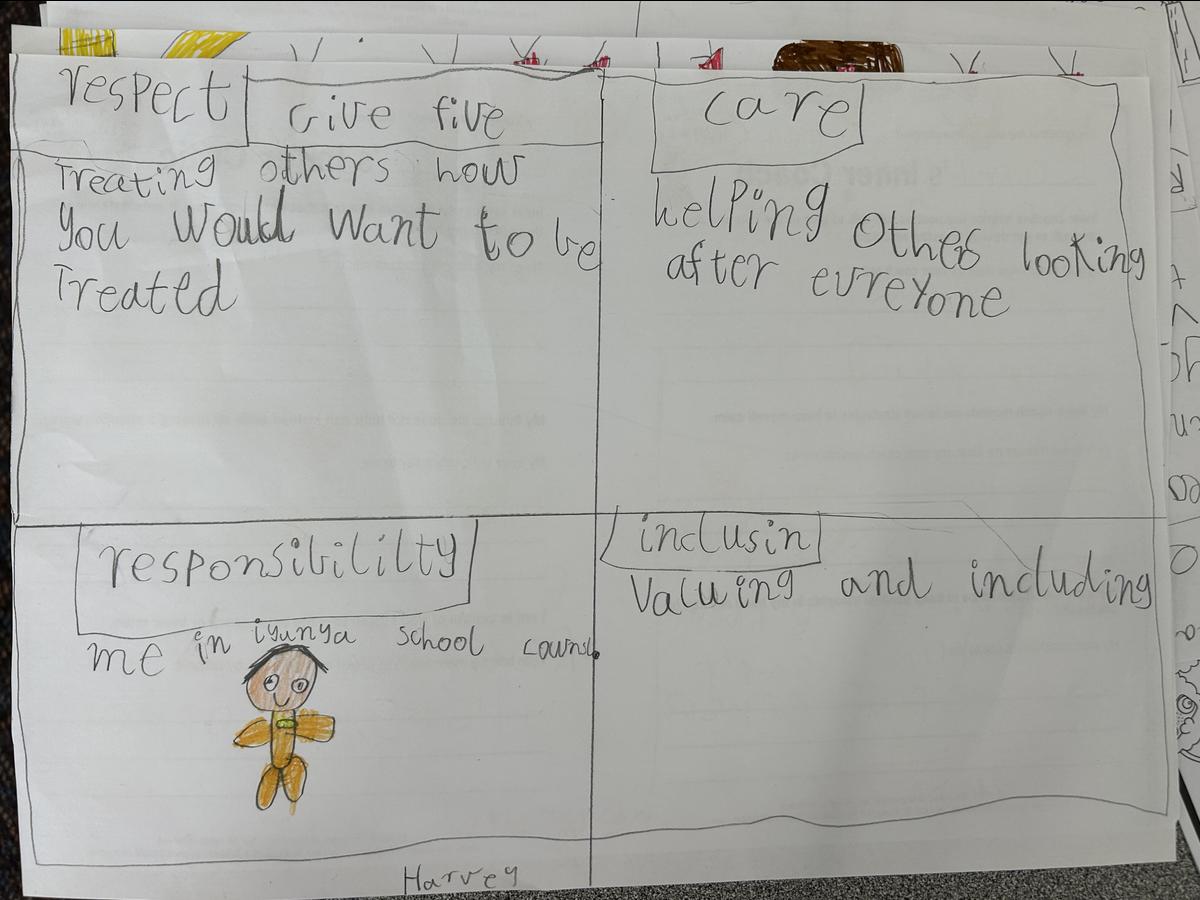 respect
Give five
Treating others how
you would want to be
Treated
care
helping others looking
after evreyone
responsibililty
me in iyunya school
inclusin
Valuing and including
Harvey